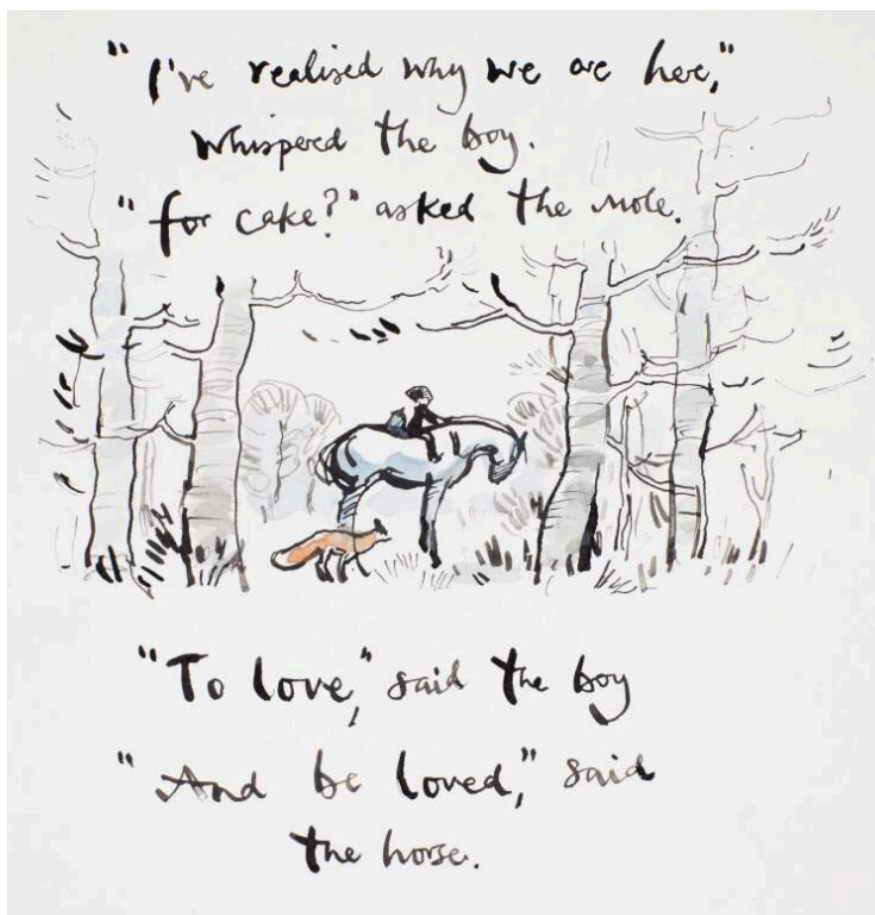 "I've realised why we are here,"
whispered the boy.
"for cake?" asked the mole.
"To love," said the boy
"And be loved," said
the horse.